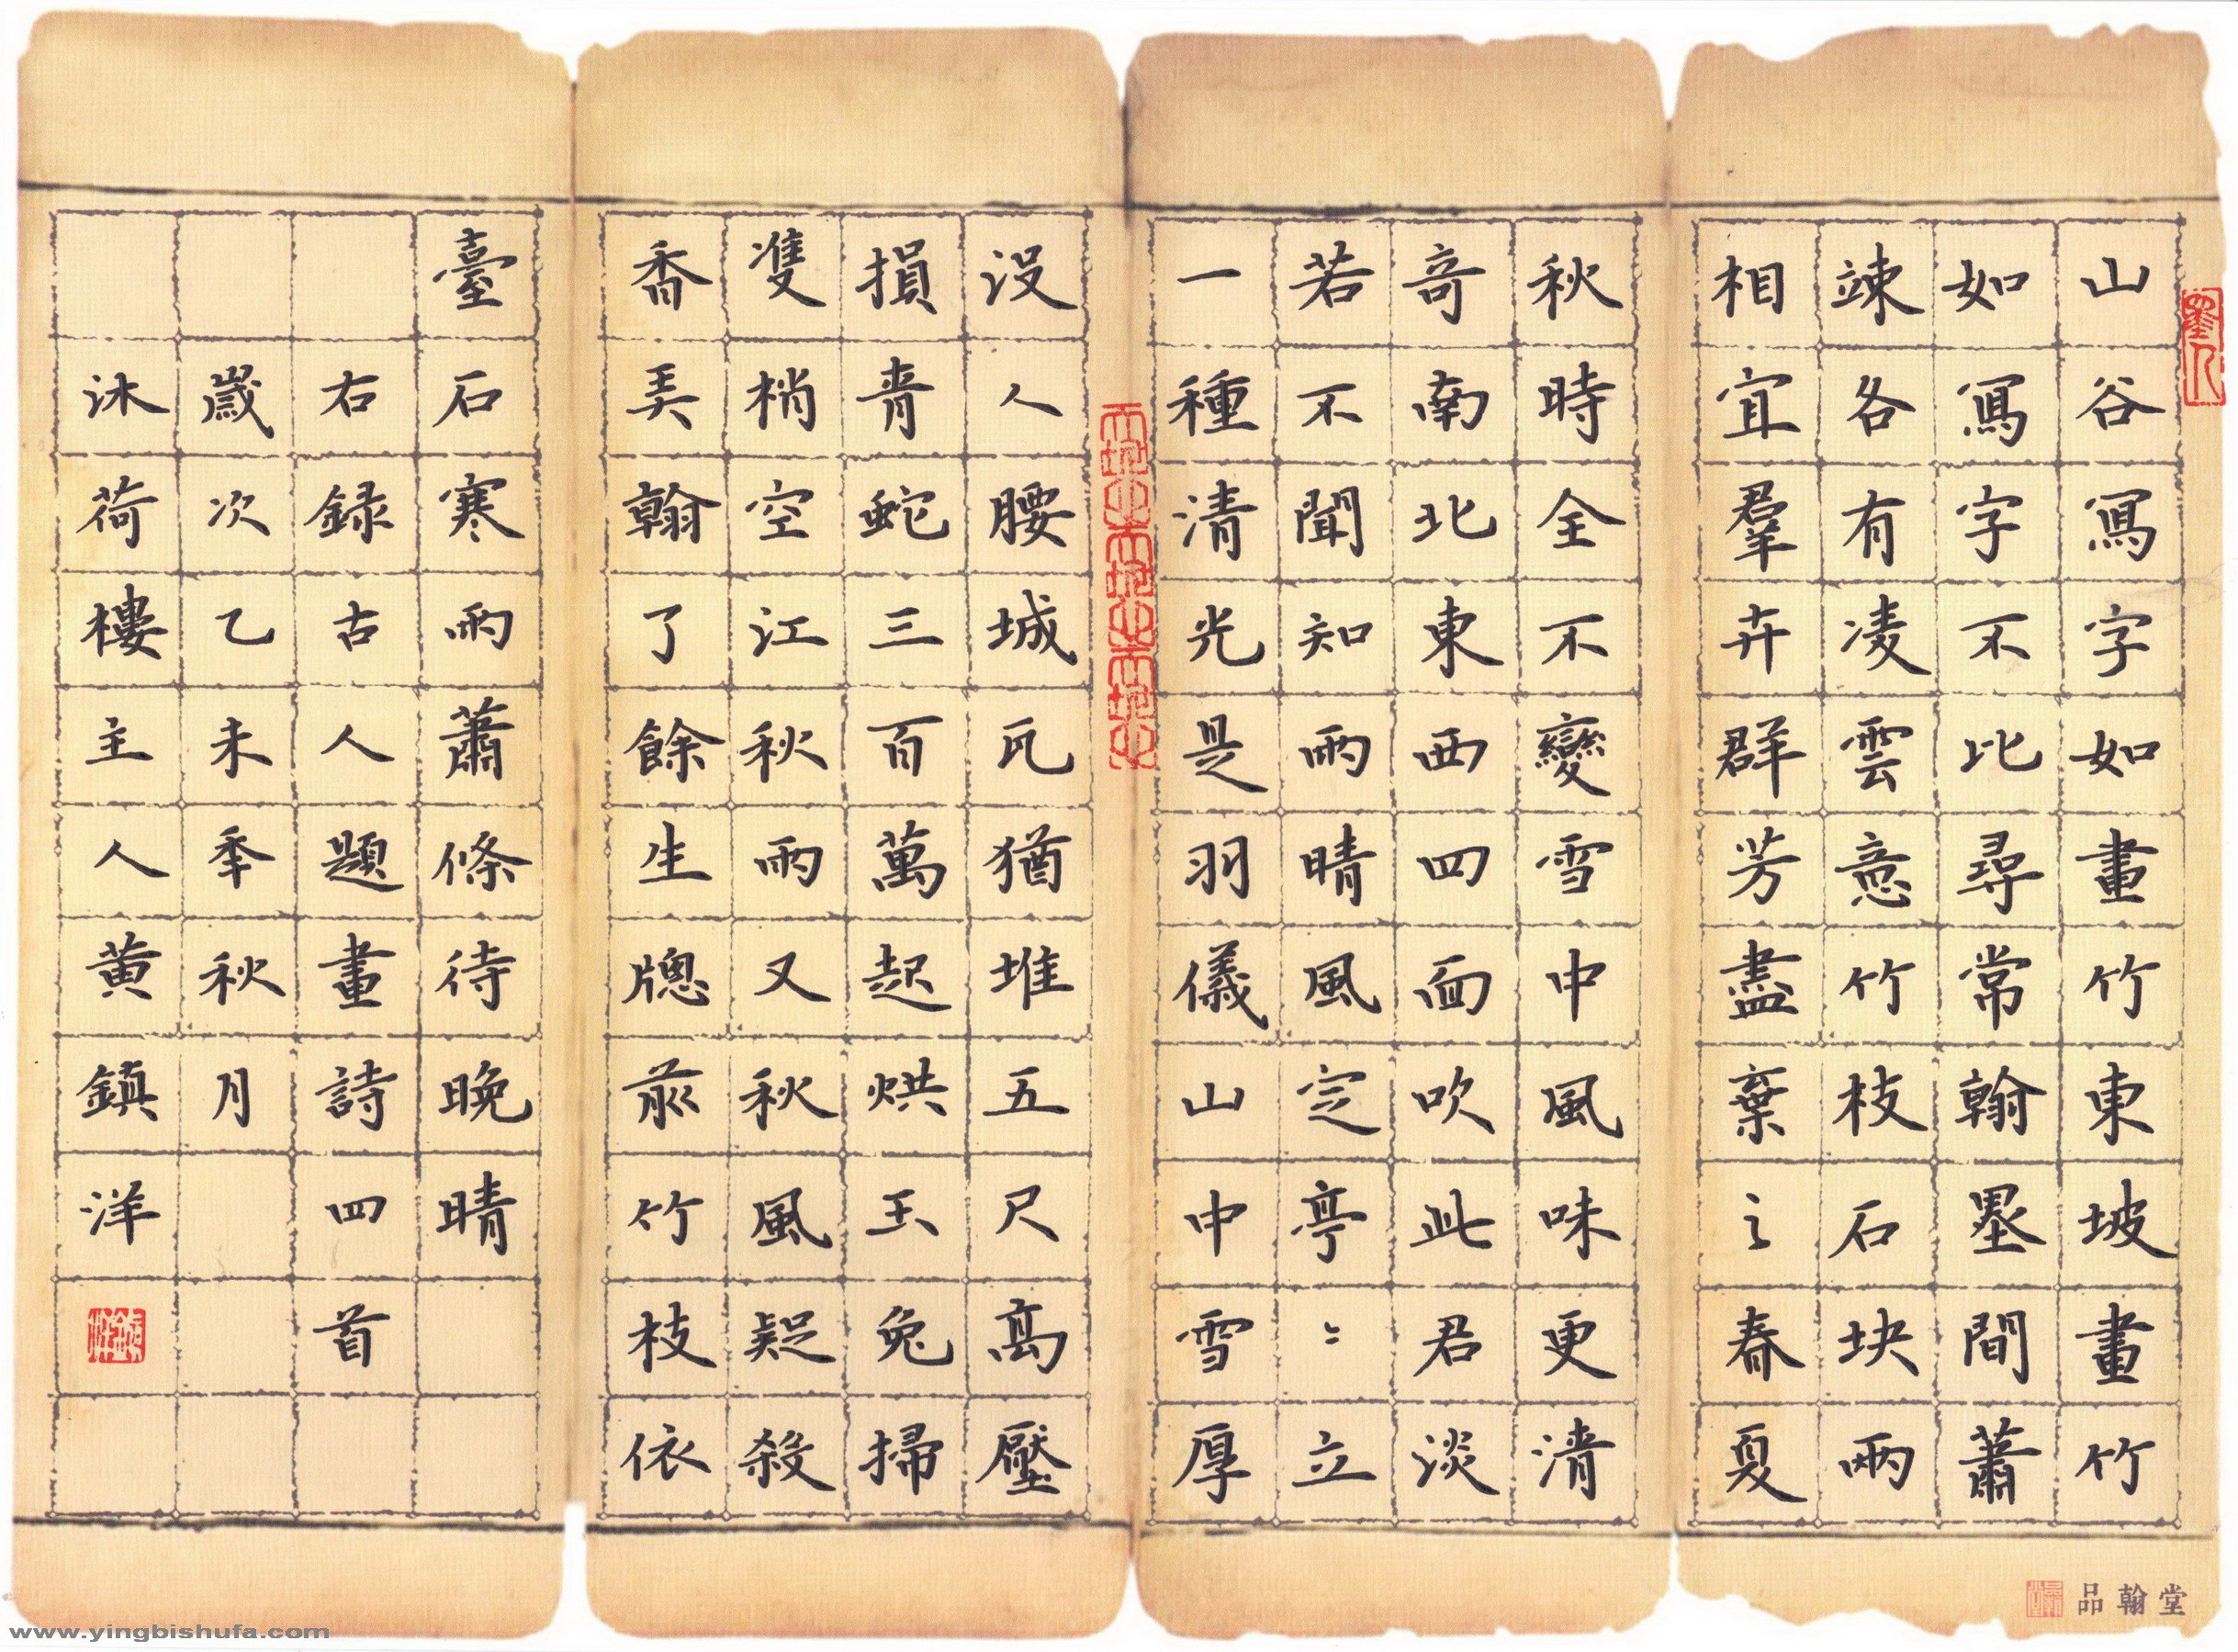 山谷寫字如畫竹東坡畫竹
如寫字不比尋常翰墨間蕭
竦各有凌雲意竹枝石块兩
相宜羣卉群芳盡棄之春夏
秋時全不變雪中風味更清
奇南北東西四面吹此君淡
若不聞知雨晴風定亭〻立
一種清光是羽儀山中雪厚
没人腰城瓦猶堆五尺高壓
損青蛇三百萬起烘玉兔掃
隻梢空江秋雨又秋風疑殺
香弄翰了餘生牕前竹枝依
臺石寒雨蕭條待晚晴
右録古人題畫詩四首
歲次乙未秊秋月
沐荷樓主人黄鎮洋
品翰堂
www.yingbishufa.com